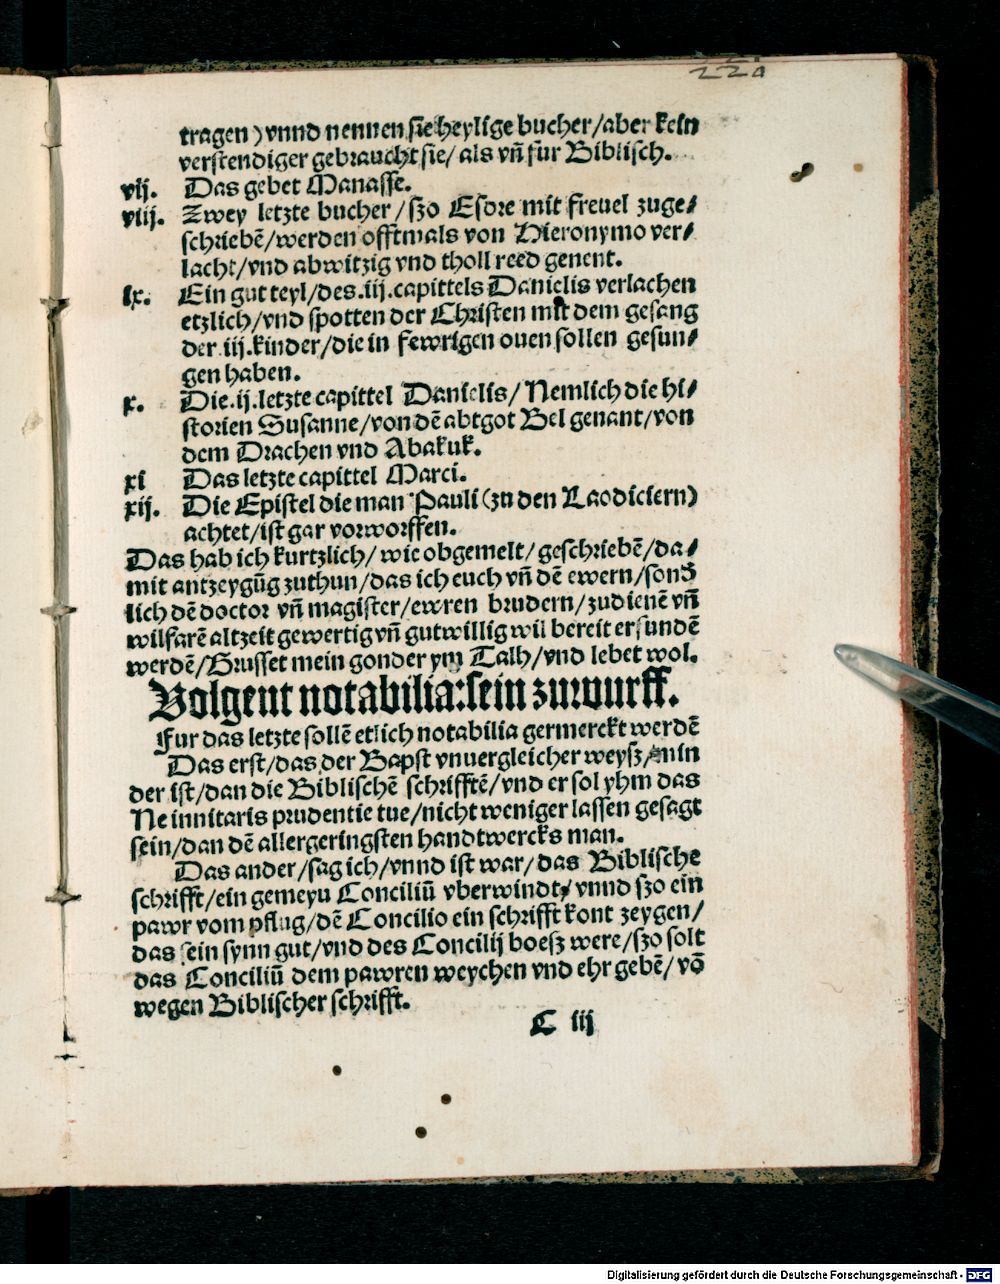 220
tragen) vnnd nennen sie heylige bucher/aber kein
verstendiger gebraucht sie/ als vñ fur Biblisch.
vij. Das gebet Manasse.
viij. Zwey letzte bucher/szo Esdre mit freuel zuge/
schriebẽ/werden offtmals von Hieronymo ver/
lacht/vnd abwitzig vnd tholl reed genent.
ix. Ein gut teyl/des.iij.capittels Danielis verlachen
etzlich/vnd spotten der Christen mit dem gesang
der.iij.kinder/die in fewrigen ouen sollen gesun/
gen haben.
x. Die.ij.letzte capittel Danielis/Nemlich die hi/
storien Susanne/von dẽ abtgot Bel genant/von
dem Drachen vnd Abakuk.
xi Das letzte capittel Marci.
xij. Die Epistel die man Pauli (zu den Laodiciern)
achtet/ist gar vorworffen.
Das hab ich kurtzlich/wie obgemelt/geschriebẽ/da/
mit antzeygũg zuthun/das ich euch vñ dẽ ewern/sond
lich dẽ doctor vñ magister/ewren brudern/zudienẽ vñ
wilfarẽ altzeit gewertig vñ gutwillig wil bereit erfundẽ
werdẽ/Grusset mein gonder ym Talh/vnd lebet wol.
Volgent notabilia:sein zuuurff.
Fur das letzte sollẽ etlich notabilia germerckt werdẽ
Das erst/das der Bapst vnuergleicher weysz/min
der ist/dan die Biblischẽ schrifftẽ/vnd er sol yhm das
Ne innitaris prudentie tue/nicht weniger lassen gesagt
sein/dan dẽ allergeringsten handtwercks man.
Das ander/sag ich/vnnd ist war/das Biblische
schrifft/ein gemeyu Conciliũ vberwindt/ vnnd szo ein
pawr vom pflug/dẽ Concilio ein schrifft kont zeygen/
das sein synn gut/vnd des Concilij boesz were/szo solt
das Conciliũ dem pawren weychen vnd ehr gebẽ/võ
wegen Biblischer schrifft.
C iij
Digitalisierung gefördert durch die Deutsche Forschungsgemeinschaft - DFG